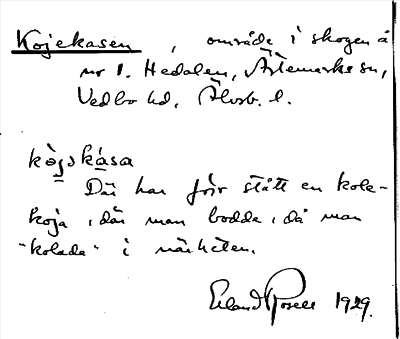 Kojekasen, område i skogen å
nr 1. Hedalen, Ärtemarks sn,
Vedbo hd, Älvsb. l.
kòjskása
Där har förr stått en kol-
koja, där man bodde, då man
"kolade" i närheten.
Erland Rosell 1929.